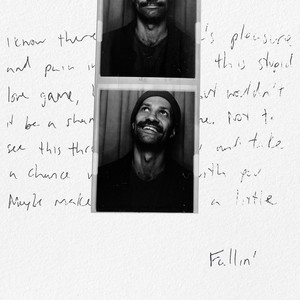 I know there 's pleasure
and pain in this stupid
love game, but wouldn't
it be a sham me. Not to
see this thro and take
a chance with you
Maybe make a little
Fallin'